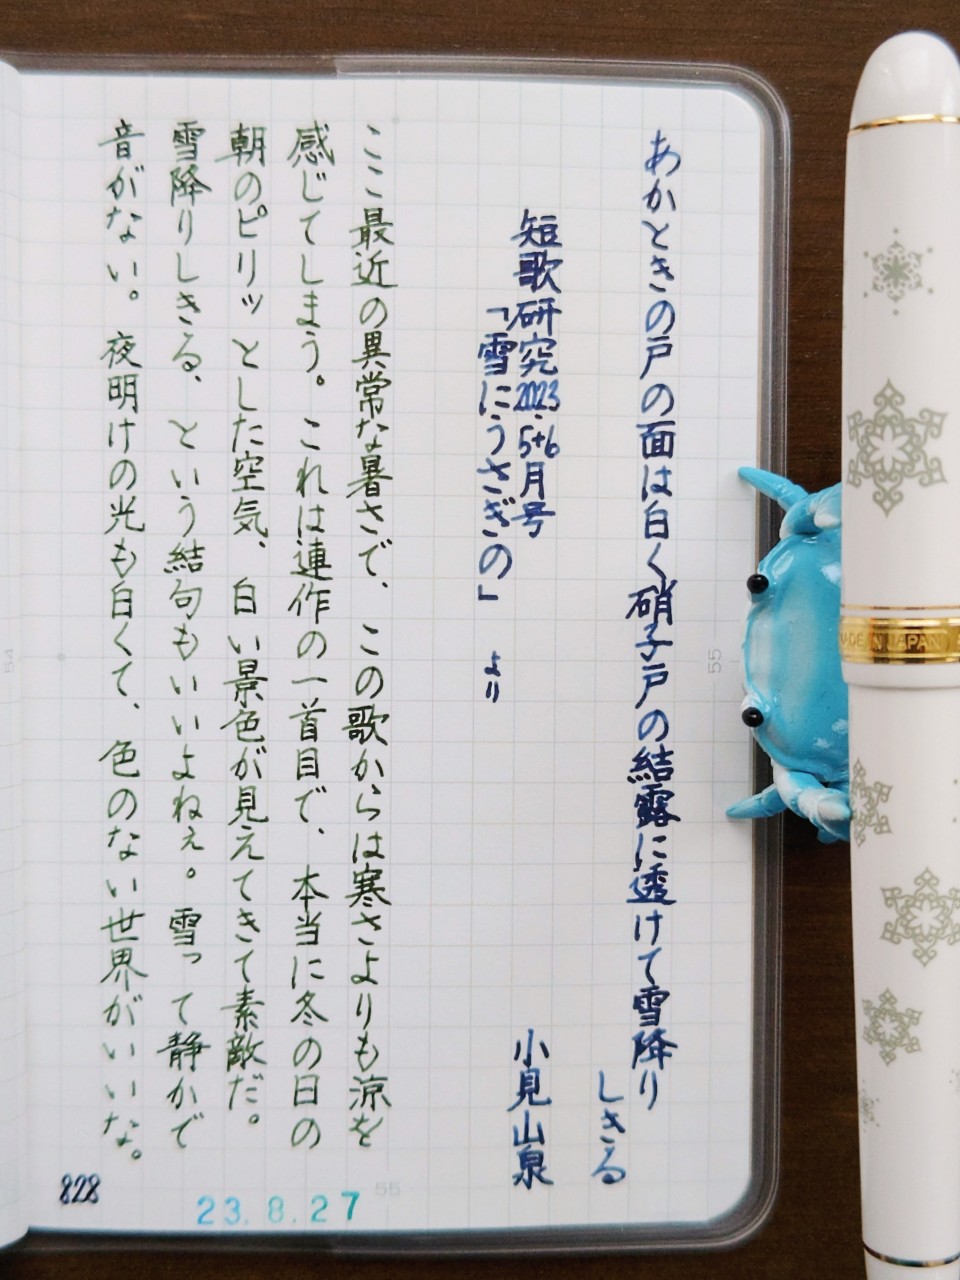 あかときの戸の面は白く硝子戸の結露に透けて雪降り
しきる
短歌研究2023.5+6月号
小見山泉
「雪にうさぎの」 より
ここ最近の異常な暑さで、この歌からは寒さよりも涼を
感じてしまう。これは連作の一首目で、本当に冬の日の
朝のピリッとした空気、白い景色が見えてきて素敵だ。
雪降りしきる、という結句もいいよねぇ。雪って静かで
音がない。夜明けの光も白くて、色のない世界がいいな。
828
23.8.27
55
55
54
MADE IN JAPAN